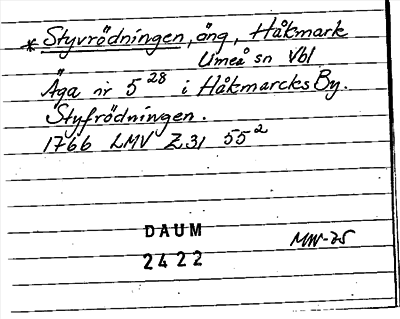 * Styvrödningen, äng, Håkmark
Umeå sn Vbl
Äga nr 5 28 i Håkmarcks By.
Styfrödningen.
1766 LMV Z31 55 2
DAUM
2422
MW-75